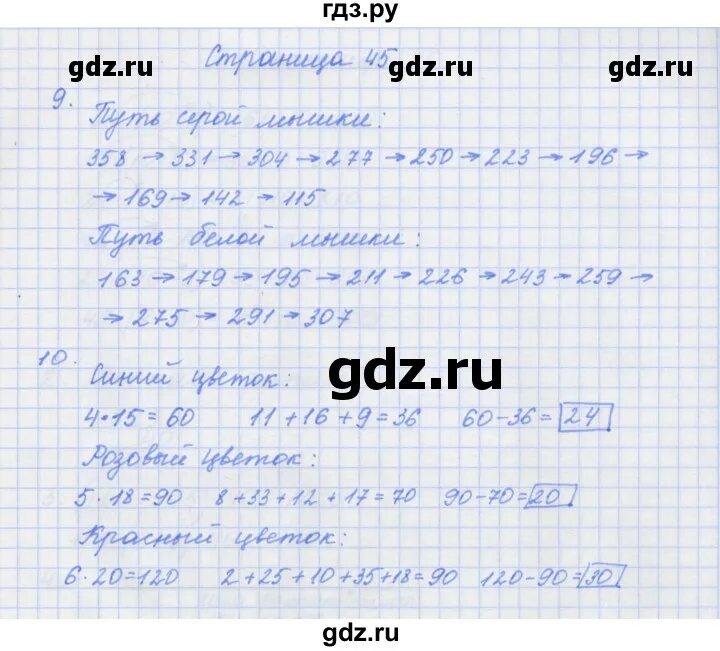 гдз.ру
Страница 45
gdz.ru gdz.ru gdz.ru
9. Путь серой мышки:
358 → 331 → 304 → 277 → 250 → 223 → 196 →
→ 169 → 142 → 115
Путь белой мышки:
163 → 179 → 195 → 211 → 226 → 243 → 259 →
→ 275 → 291 → 307
10. Синий цветок:
gdz.ru
4·15=60 11+16+9=36 60-36=24
Розовый цветок:
5·18=90 8+33+12+17=70 90-70=20
Красный цветок:
6·20=120 2+25+10+35+18=90 120-90=30
gdz.ru